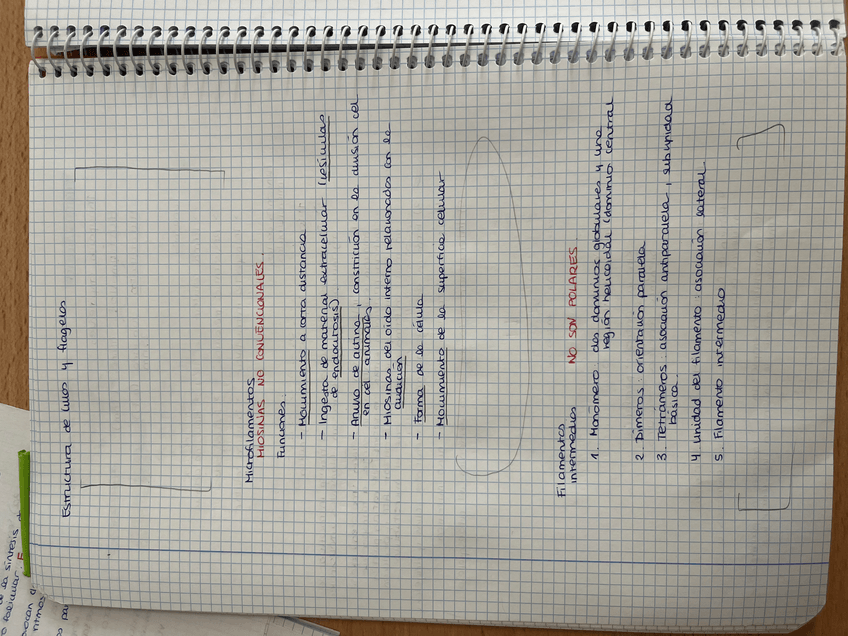 Estructura de cilios y flagelos
Microfilamentos
MIOSINAS NO CONVENCIONALES.
Funciones
- Movimiento a corta distancia
- Ingesta de material extracelular (vesículas
de endocitosis)
- Anillo de actina, constricción en la división cel
en cel animales.
- Miosinas del oído interno relacionadas con la
audición
- Forma de la célula
- Movimiento de la superficie celular
Filamentos
intermedios NO SON POLARES
1. Monómero dos dominios globulares y una
región helicoidal (dominio central
2 Dímeros orientación paralela
3. Tetrámeros asociación antiparalela, subunidad
básica.
4 unidad del filamento: asociación lateral.
5. Filamento intermedio
de la síntesis